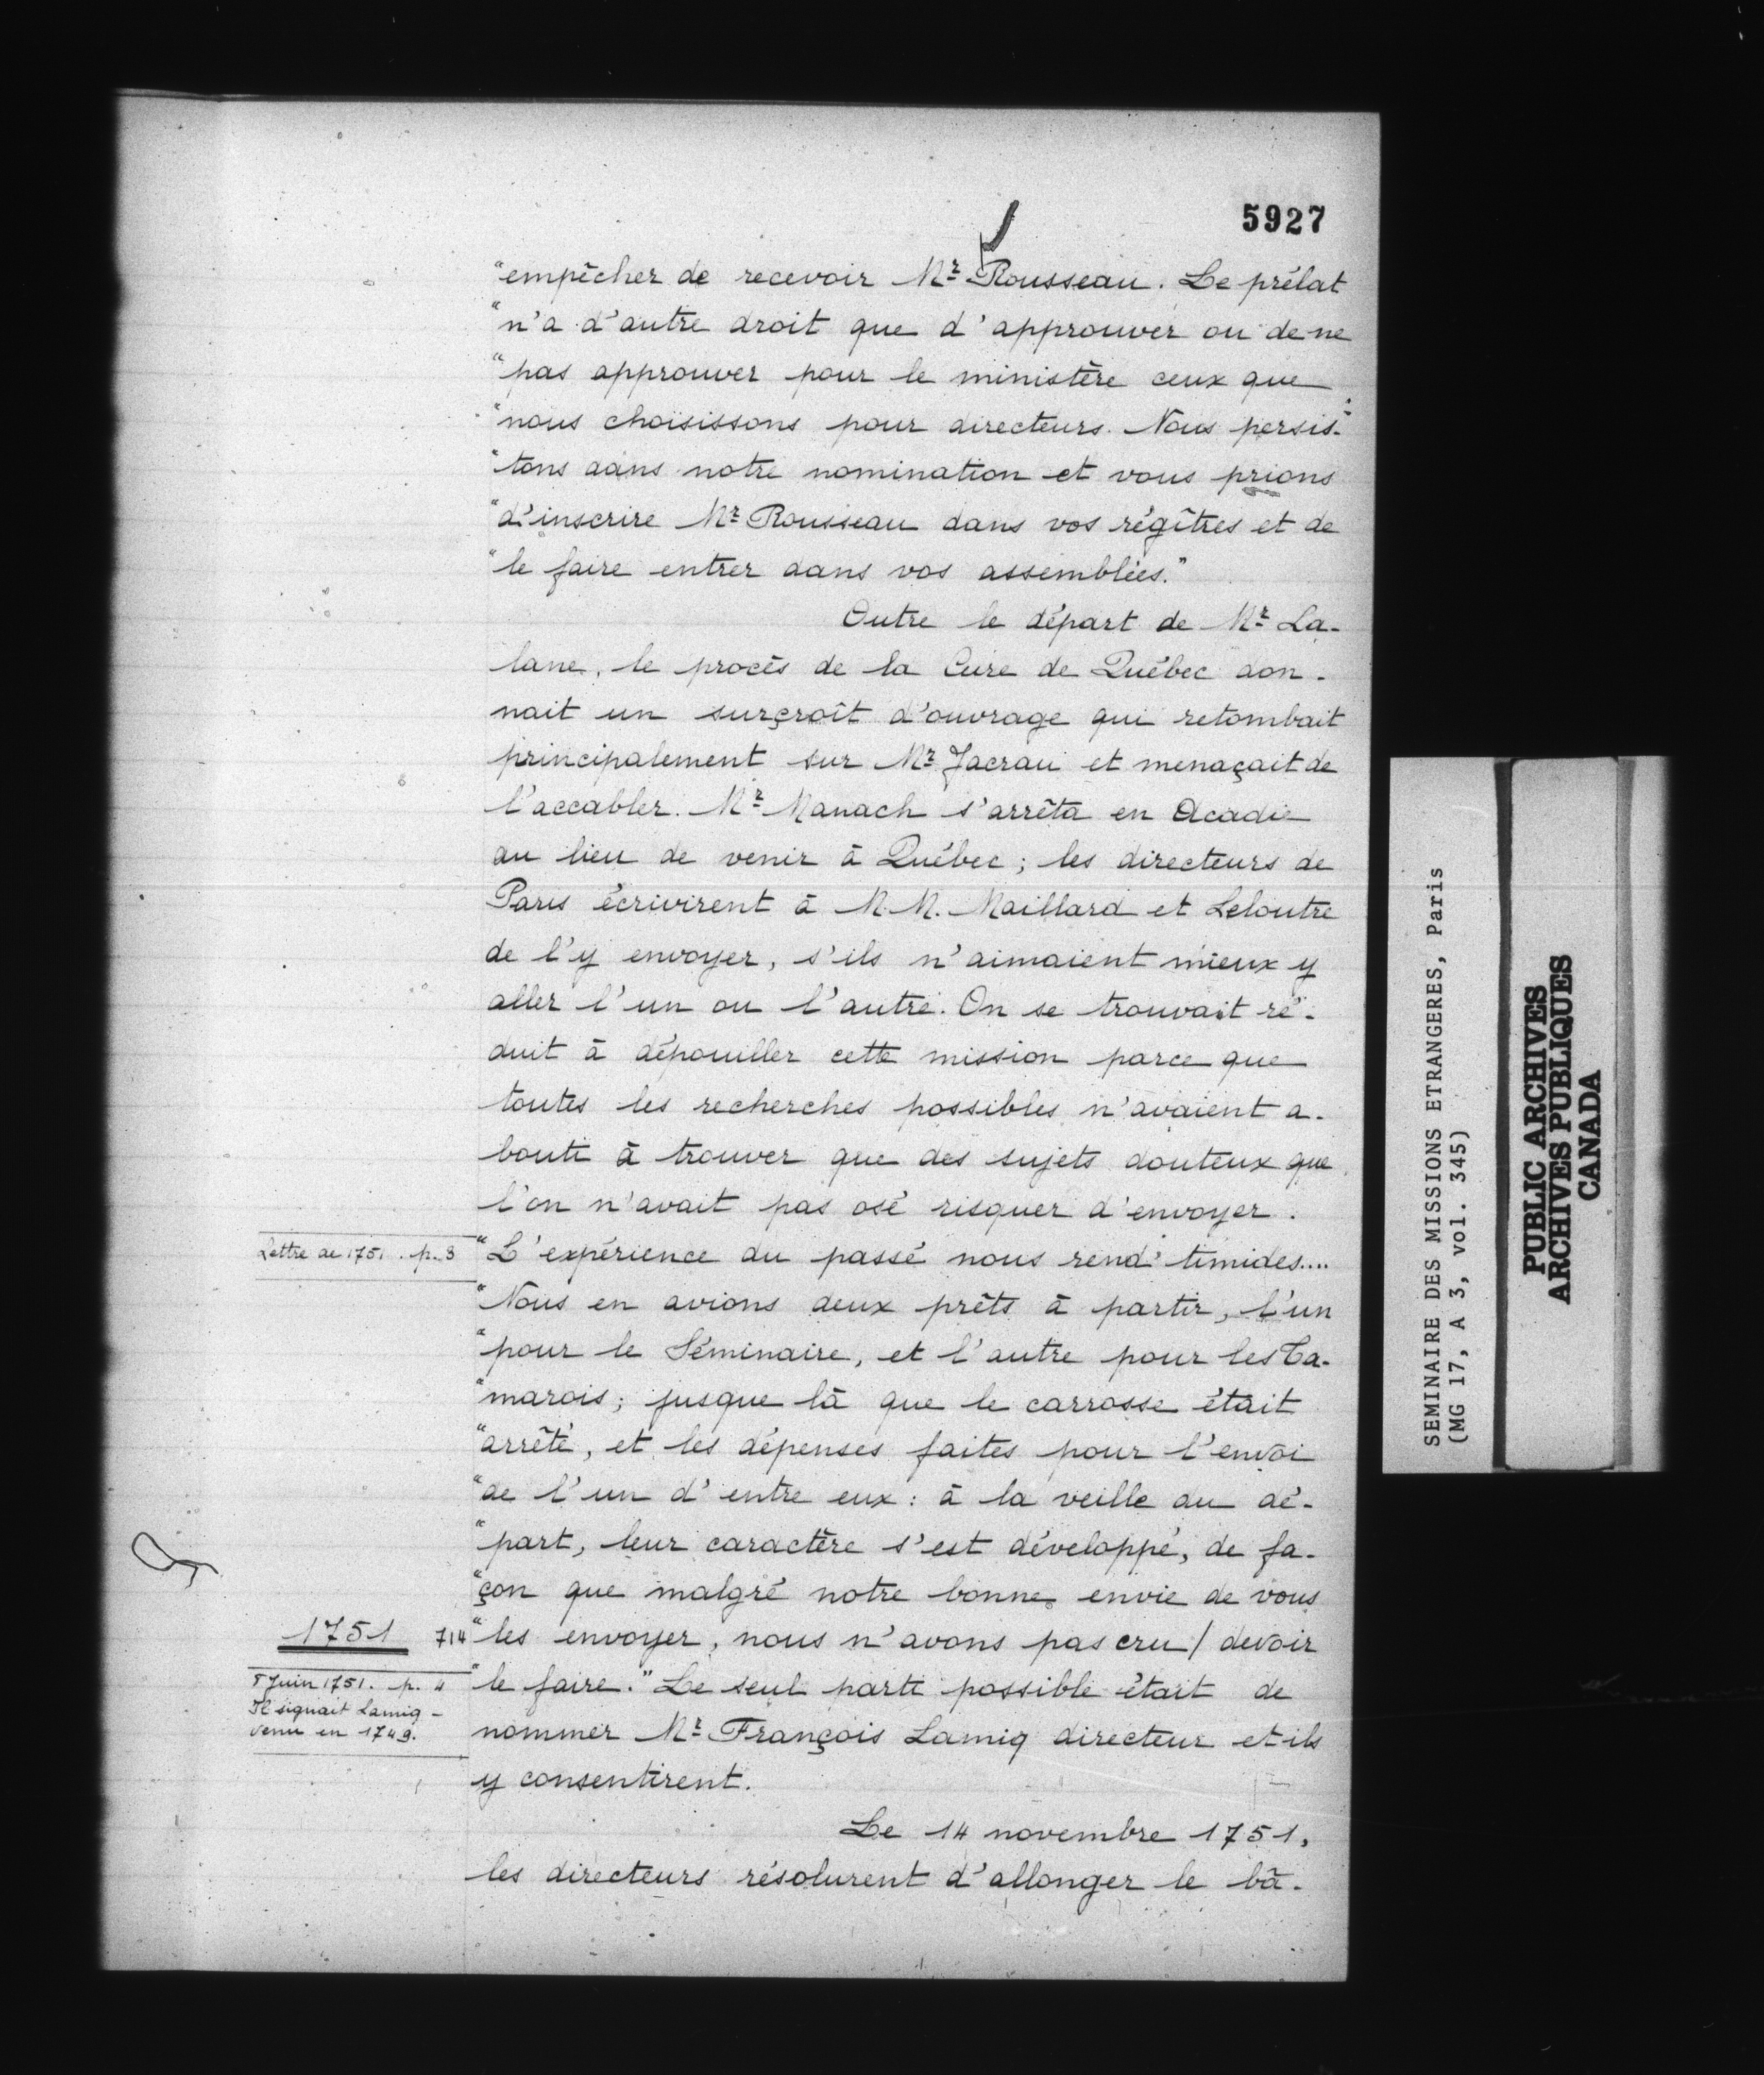 5927
"empêcher de recevoir Mr Rousseau. Le prélat
"n'a d'autre droit que d'approuver ou de ne
"pas approuver pour le ministère ceux que
"nous choisissons pour directeurs. Nous persis-
"tons dans notre nomination et vous prions
"d'inscrire Mr Rousseau dans vos régîtres et de
"le faire entrer dans vos assemblées."
Outre le départ de Mr La-
lane, le procès de la Cure de Québec don-
nait un surçroît d'ouvrage qui retombait
principalement sur Mr Jacrau et menaçait de
l'accabler. Mr Manach s'arrêta en Acadie
au lieu de venir à Québec; les directeurs de
Paris écrivirent à M.M. Maillard et Leloutre
de l'y envoyer, s'ils n'aimaient mieux y
aller l'un ou l'autre. On se trouvait ré-
duit à dépouiller cette mission parce que
toutes les recherches possibles n'avaient a-
bouti à trouver que des sujets douteux que
l'on n'avait pas osé risquer d'envoyer.
Lettre de 1751. p. 3
"L'expérience du passé nous rend timides....
"Nous en avions deux prêts à partir, l'un
"pour le Séminaire, et l'autre pour les Ta-
"marois; jusque là que le carrosse était
"arrêté, et les dépenses faites pour l'envoi
"de l'un d'entre eux: à la veille du dé-
"part, leur caractère s'est développé, de fa-
"çon que malgré notre bonne envie de vous
1751 714
"les envoyer, nous n'avons pas cru / devoir
5 Juin 1751. p. 4
Il signait Lamiq -
venu en 1749.
"le faire." Le seul parti possible était de
nommer Mr François Lamiq directeur et ils
y consentirent.
Le 14 novembre 1751,
les directeurs résolurent d'allonger le bâ-
SEMINAIRE DES MISSIONS ETRANGERES, Paris
(MG 17, A 3, vol. 345)
PUBLIC ARCHIVES
ARCHIVES PUBLIQUES
CANADA